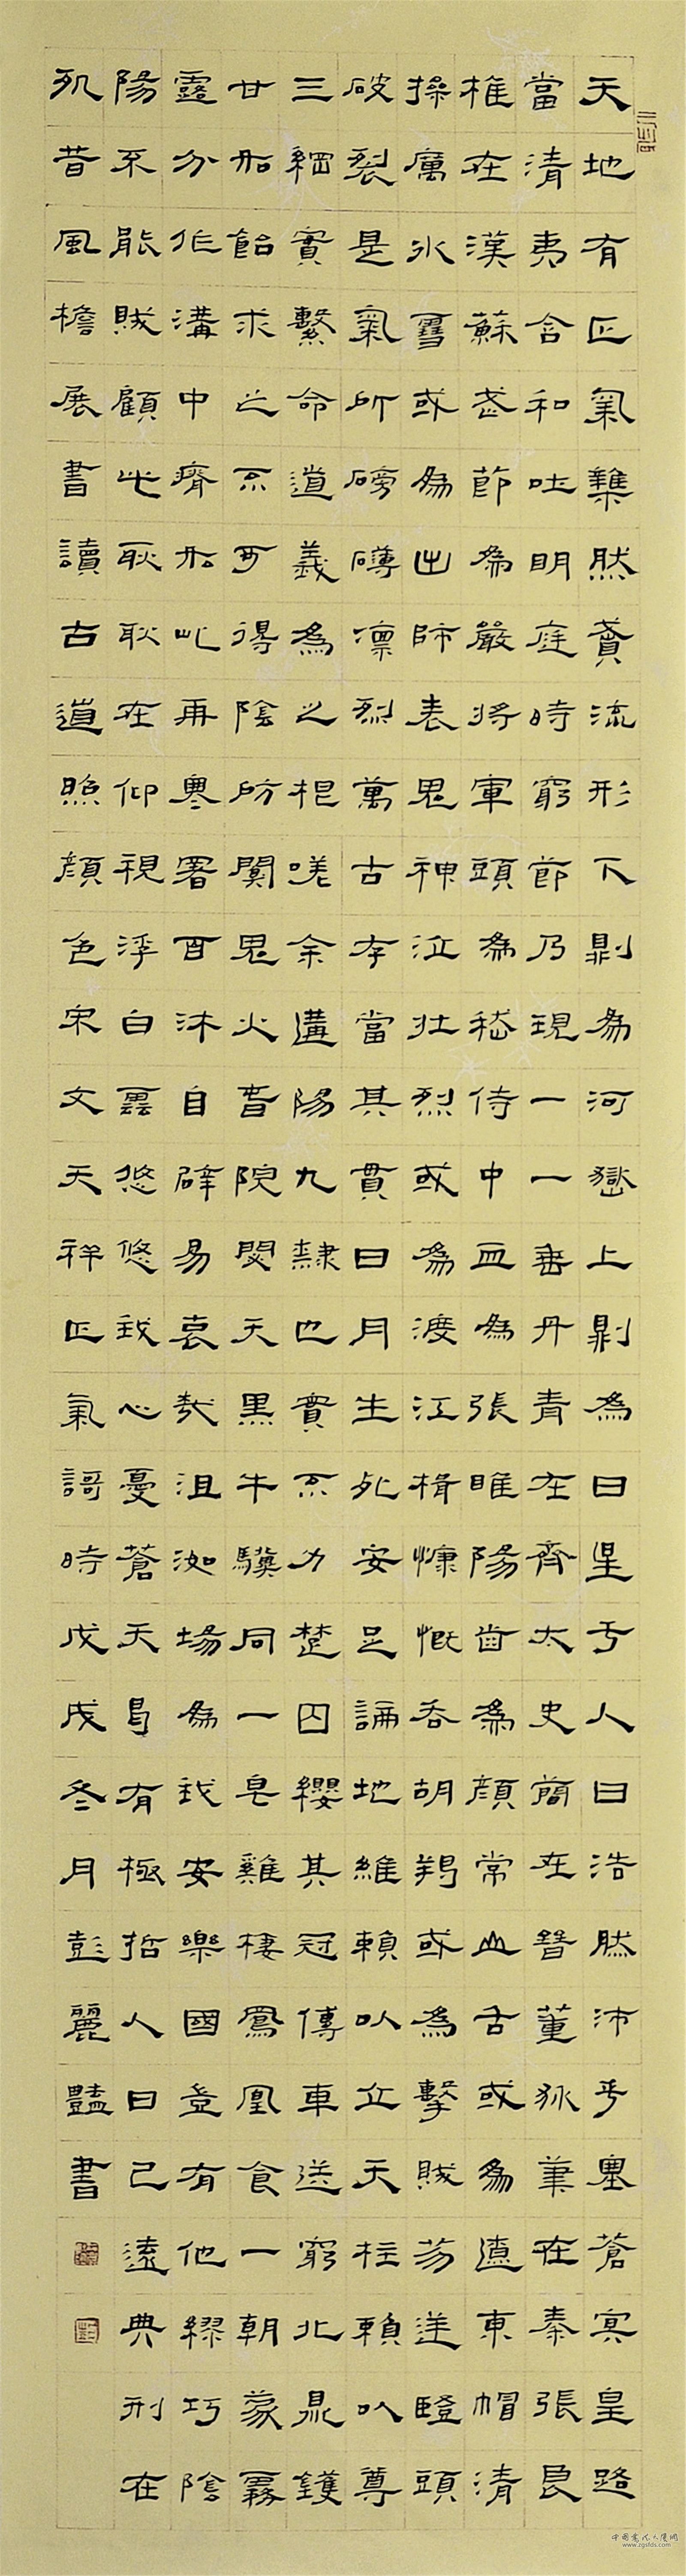 天地有正氣雜然賦流形下則為河嶽上則為日星于人曰浩然沛乎塞蒼冥皇路
當清夷含和吐明庭時窮節乃現一一垂丹青在齊太史簡在晉董狐筆在秦張良
椎在漢蘇武節為嚴將軍頭為嵇侍中血為張睢陽齒為顏常山舌或為遼東帽清
操厲冰雪或為出師表鬼神泣壯烈或為渡江楫慷慨吞胡羯或為擊賊笏逆豎頭
破裂是氣所磅礴凜烈萬古存當其貫日月生死安足論地維賴以立天柱賴以尊
三綱實繫命道義為之根嗟余遘陽九隸也實不力楚囚纓其冠傳車送窮北鼎鑊
甘如飴求之不可得陰房闃鬼火春院閟天黑牛驥同一皂雞棲鳳凰食一朝蒙霧
露分作溝中瘠如此再寒暑百沴自辟易哀哉沮洳場為我安樂國豈有他繆巧陰
陽不能賊顧此耿耿在仰視浮白雲悠悠我心憂蒼天曷有極哲人日已遠典刑在
夙昔風檐展書讀古道照顏色宋文天祥正氣謌時戊戌冬月彭麗豔書
www.zgsfds.com